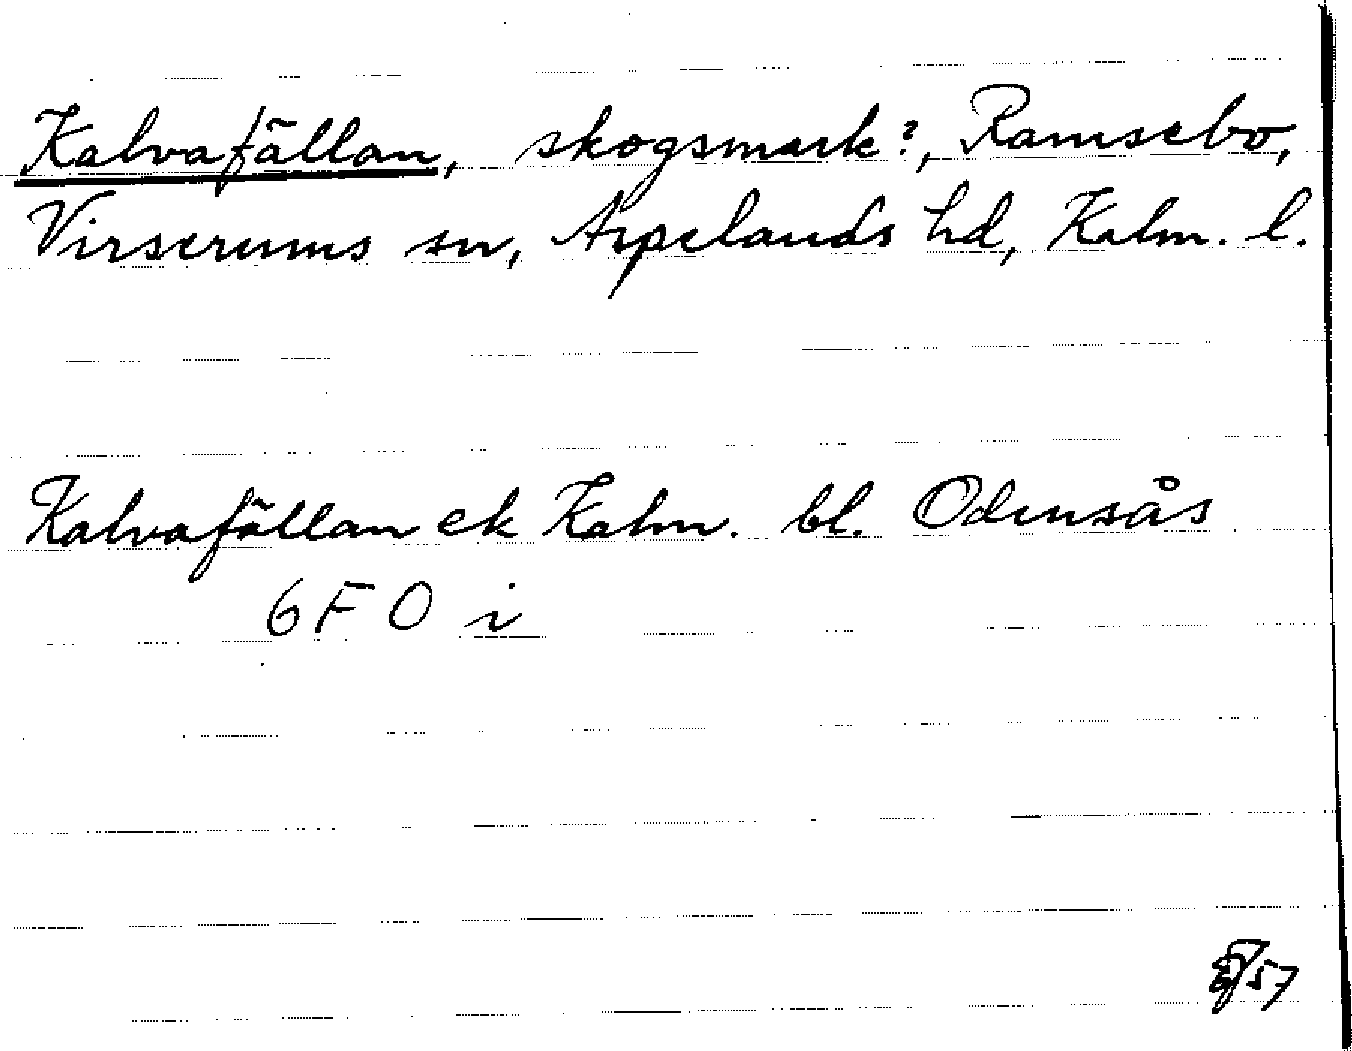 Kalvafällan, skogsmark?, Ramsebo,
Virserums sn, Aspelands hd, Kalm. l.
Kalvafällan ek Kalm. bl. Odensås
6F 0 i